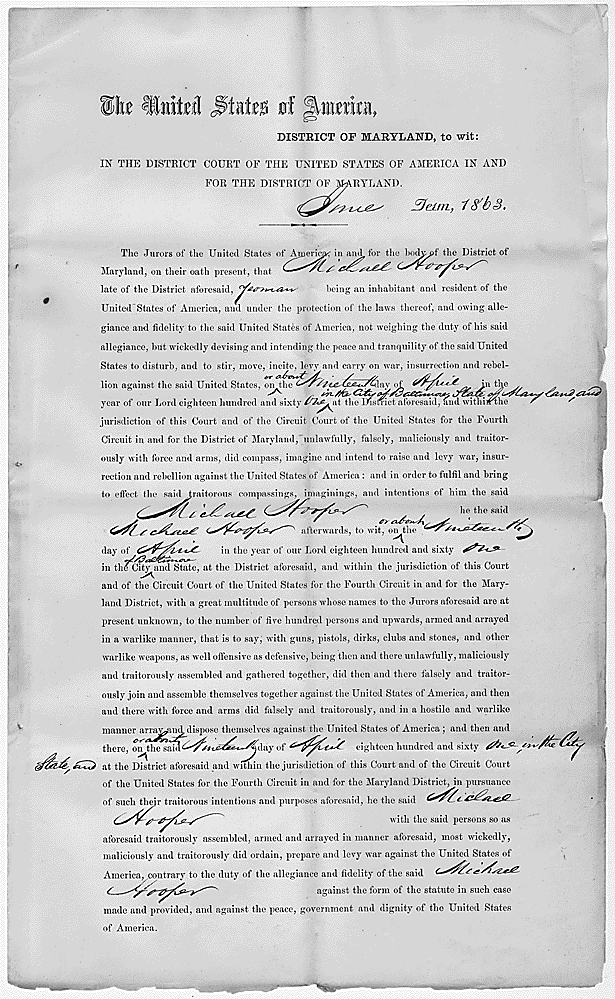 The United States of America,
DISTRICT OF MARYLAND, to wit:
IN THE DISTRICT COURT OF THE UNITED STATES OF AMERICA IN AND
FOR THE DISTRICT OF MARYLAND.
June Term, 1863.
The Jurors of the United States of America, in and for the body of the District of
Maryland, on their oath present, that Michael Hooper
late of the District aforesaid, yeoman being an inhabitant and resident of the
United States of America, and under the protection of the laws thereof, and owing alle-
giance and fidelity to the said United States of America, not weighing the duty of his said
allegiance, but wickedly devising and intending the peace and tranquility of the said United
States to disturb, and to stir, move, incite, levy and carry on war, insurrection and rebel-
lion against the said United States, on or about the Nineteenth day of April in the
year of our Lord eighteen hundred and sixty one, in the City of Baltimore, State of Maryland, and at the District aforesaid, and within the
jurisdiction of this Court and of the Circuit Court of the United States for the Fourth
Circuit in and for the District of Maryland, unlawfully, falsely, maliciously and traitor-
ously with force and arms, did compass, imagine and intend to raise and levy war, insur-
rection and rebellion against the United States of America: and in order to fulfil and bring
to effect the said traitorous compassings, imaginings, and intentions of him the said
Michael Hooper he the said
Michael Hooper afterwards, to wit, on or about the Nineteenth
day of April in the year of our Lord eighteen hundred and sixty one
in the City of Baltimore and State, at the District aforesaid, and within the jurisdiction of this Court
and of the Circuit Court of the United States for the Fourth Circuit in and for the Mary-
land District, with a great multitude of persons whose names to the Jurors aforesaid are at
present unknown, to the number of five hundred persons and upwards, armed and arrayed
in a warlike manner, that is to say, with guns, pistols, dirks, clubs and stones, and other
warlike weapons, as well offensive as defensive, being then and there unlawfully, maliciously
and traitorously assembled and gathered together, did then and there falsely and traitor-
ously join and assemble themselves together against the United States of America, and then
and there with force and arms did falsely and traitorously, and in a hostile and warlike
manner array and dispose themselves against the United States of America; and then and
there, on or about the said Nineteenth day of April eighteen hundred and sixty one, in the City
State, and at the District aforesaid and within the jurisdiction of this Court and of the Circuit Court
of the United States for the Fourth Circuit in and for the Maryland District, in pursuance
of such their traitorous intentions and purposes aforesaid, he the said Michael
Hooper with the said persons so as
aforesaid traitorously assembled, armed and arrayed in manner aforesaid, most wickedly,
maliciously and traitorously did ordain, prepare and levy war against the United States of
America, contrary to the duty of the allegiance and fidelity of the said Michael
Hooper against the form of the statute in such case
made and provided, and against the peace, government and dignity of the United States
of America.